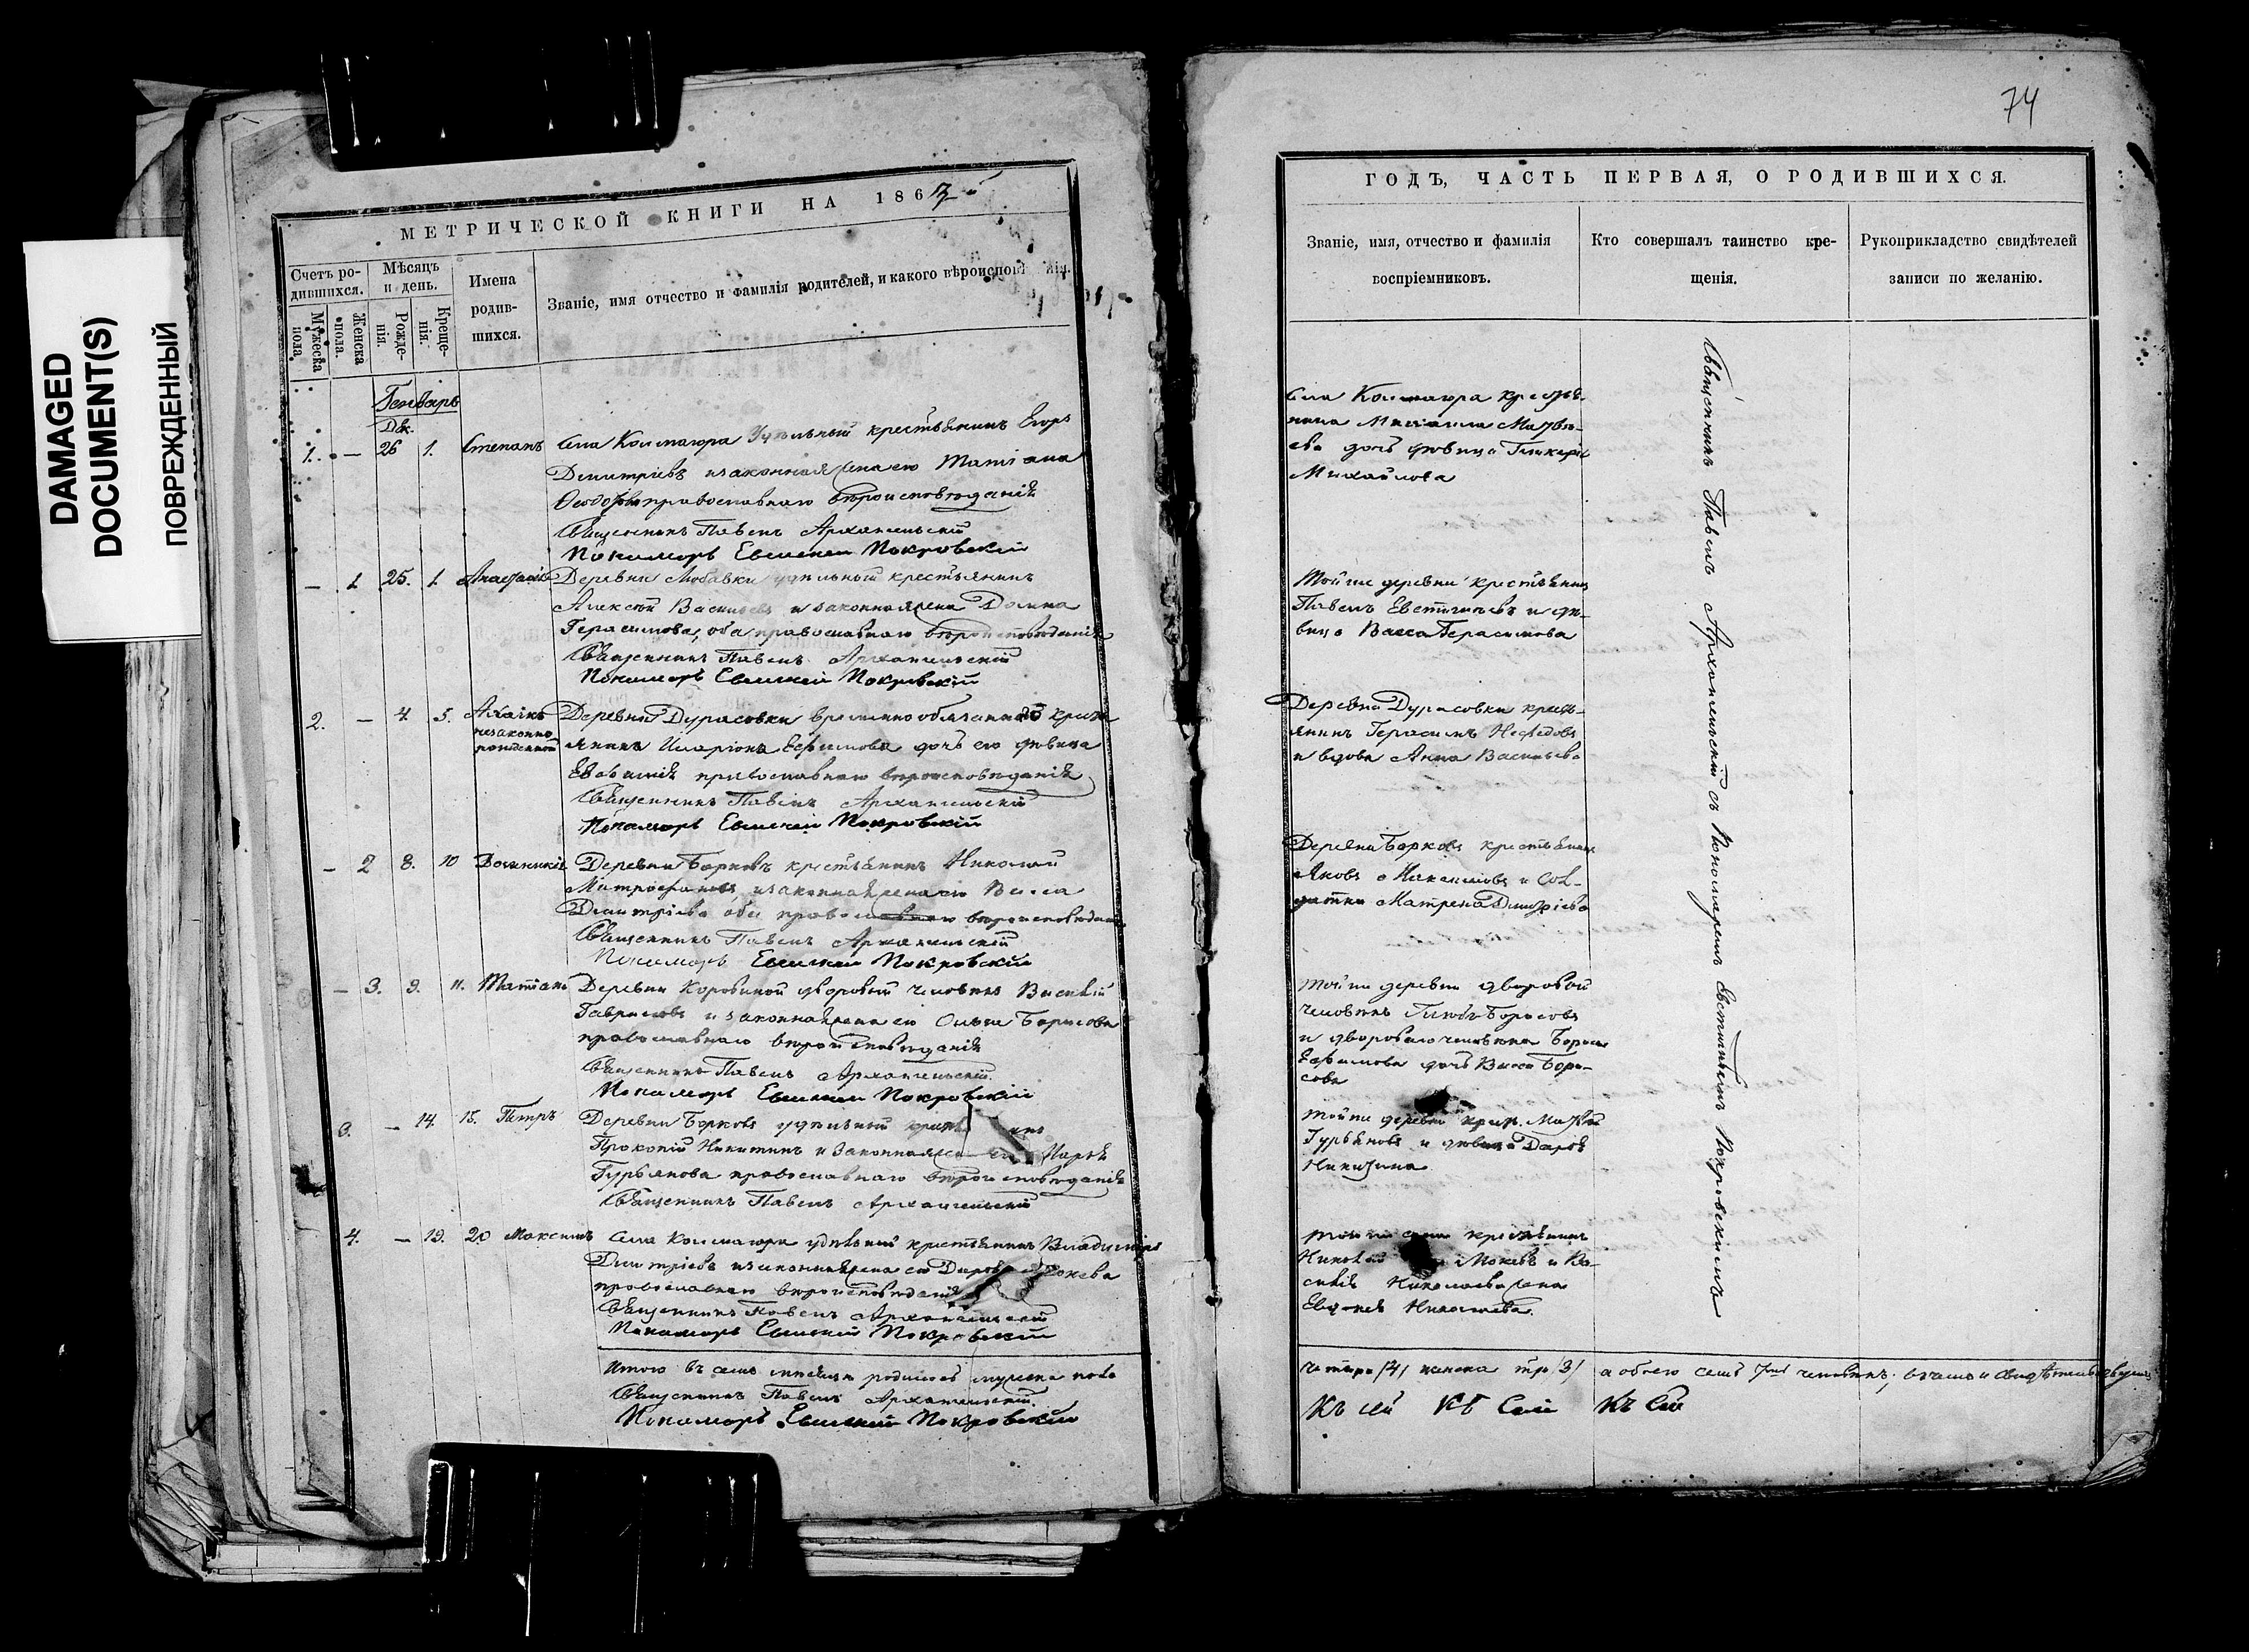 DAMAGED
DOCUMENT(S)
ПОВРЕЖДЕННЫЙ
74
МЕТРИЧЕСКОЙ КНИГИ НА 1867й
Счетъ ро-
дившихся.
Мужеска
пола.
Женска
пола.
Мѣсяцъ
и день.
Рожде-
нія.
Креще-
нія.
Имена
родив-
шихся.
Званіе, имя отчество и фамилія родителей, и какого вѣроисповѣ нія.
Генварь
Дек.
1. — 26 1. Степанъ
Села Колмагора Удѣльный крестьянинъ Егоръ
Димитріевъ и законная жена его Татіана
православнаго вѣроисповѣданія
Священникъ Павелъ Архангельскій
Пономарь Покровскій
— 1 25. 1. Анастасія
Деревни удѣльный крестьянинъ
Алексѣй Васильевъ и законная жена Домна
Герасимова, оба православнаго вѣроисповѣданія
Священникъ Павелъ Архангельскій
Пономарь Покровскій
2. — 4 5.
незаконно
рожденный
Деревни Дурасовки временно обязаннаго крест
янина Иларіона Ефимова дочь его дѣвица
православнаго вѣроисповѣданія
Священникъ Павелъ Архангельскій
Пономарь Покровскій
— 2 8. 10 Домникія
Деревни Борковъ крестьянинъ Николай
Митрофановъ и законная жена его Васса
Димитріева оба православнаго вѣроисповѣданія
Священникъ Павелъ Архангельскій
Пономарь Покровскій
— 3. 9. 11. Татіана
Деревни Коровиной дворовый человѣкъ Василій
Гавриловъ и законная жена его Ольга Борисова
православнаго вѣроисповѣданія
Священникъ Павелъ Архангельскій
Пономарь Покровскій
3. — 14. 15. Петръ
Деревни Борковъ удѣльный
Прокопій Никитинъ и законная
Гурьянова православнаго вѣроисповѣданія
Священникъ Павелъ Архангельскій
4. — 19. 20 Максимъ
Села Колмагора удѣльный крестьянинъ Владиміръ
Димитріевъ и законная жена его
православнаго вѣроисповѣданія
Священникъ Павелъ Архангельскій
Пономарь Покровскій
Итого въ семъ мѣсяцѣ родилось мужеска пола
Священникъ Павелъ Архангельскій
Пономарь Покровскій
ГОДЪ, ЧАСТЬ ПЕРВАЯ, О РОДИВШИХСЯ.
Званіе, имя, отчество и фамилія
воспріемниковъ.
Кто совершалъ таинство кре-
щенія.
Рукоприкладство свидѣтелей
записи по желанію.
Села Колмагора крестья-
нина Михаила Матвѣ-
ева дочь дѣвица Гликерія
Михайлова
Той же деревни крестьянинъ
Павелъ Евстигнѣевъ и дѣ-
вица Васса Герасимова
Деревни Дурасовки крест-
янинъ Герасимъ Нефедовъ
и вдова Анна Васильева
Деревни Борковъ крестьянинъ
Яковъ Максимовъ и Сол-
датка Матрена Димитріева
Той же деревни дворовой
человѣкъ Глѣбъ Борисовъ
и двороваго человѣка Бориса
Ефимова дочь Васса Бори-
сова
Той же деревни крест. Матвей
Гурьяновъ и дѣвица Дарья
Никитина
Той же села крестьянинъ
Николай Мокевъ и Ва-
силія Николаева жена
Николаева.
Священникъ Павелъ Архангельскій съ Пономаремъ Евстигнѣемъ Покровскимъ
четыре /4/ женска три /3/ а обоего семь человѣкъ;
Къ сей Къ Сей Къ Сей